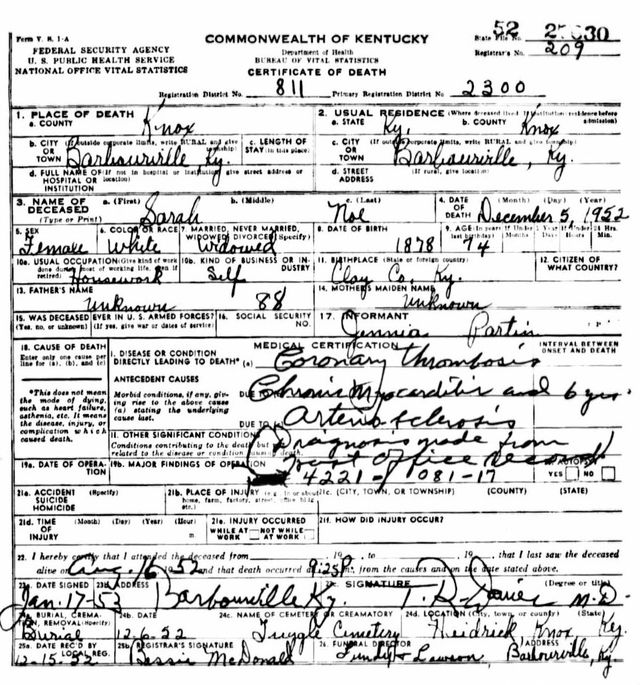 Form V. S. 1-A
FEDERAL SECURITY AGENCY
U. S. PUBLIC HEALTH SERVICE
NATIONAL OFFICE VITAL STATISTICS
COMMONWEALTH OF KENTUCKY
Department of Health
BUREAU OF VITAL STATISTICS
CERTIFICATE OF DEATH
State File No. 52
Registrar's No. 209
Registration District No. 811 Primary Registration District No. 2300
1. PLACE OF DEATH
a. COUNTY Knox
2. USUAL RESIDENCE (Where deceased lived residence before admission)
a. STATE Ky. b. COUNTY Knox
b. CITY (If outside corporate limits, write RURAL and give
OR TOWN Barbourville Ky.
c. LENGTH OF STAY (in this place)
c. CITY (If outside corporate limits, write RURAL and give township)
OR TOWN Barbourville, Ky.
d. FULL NAME OF (If not in hospital or institution, give street address or location)
HOSPITAL OR INSTITUTION
d. STREET ADDRESS (If rural, give location)
3. NAME OF DECEASED (Type or Print)
a. (First) Sarah b. (Middle) c. (Last) Noe
4. DATE OF DEATH (Month) (Day) (Year) December 5, 1952
5. SEX Female
6. COLOR OR RACE White
7. MARRIED, NEVER MARRIED, WIDOWED, DIVORCED (Specify) Widowed
8. DATE OF BIRTH 1878
9. AGE (In years last birthday) 74 If Under 1 Year If Under 24 Hrs.
10a. USUAL OCCUPATION (Give kind of work done during most of working life, even if retired) Housework
10b. KIND OF BUSINESS OR INDUSTRY Self
11. BIRTHPLACE (State or foreign country) Clay Co. Ky.
12. CITIZEN OF WHAT COUNTRY?
13. FATHER'S NAME Unknown 88
14. MOTHER'S MAIDEN NAME Unknown
15. WAS DECEASED EVER IN U. S. ARMED FORCES?
(Yes, no, or unknown) (If yes, give war or dates of service)
16. SOCIAL SECURITY NO.
17. INFORMANT Partin
18. CAUSE OF DEATH
Enter only one cause per line for (a), (b), and (c)
MEDICAL CERTIFICATION
INTERVAL BETWEEN ONSET AND DEATH
I. DISEASE OR CONDITION DIRECTLY LEADING TO DEATH* (a) Coronary thrombosis
*This does not mean the mode of dying, such as heart failure, asthenia, etc. It means the disease, injury, or complication which caused death.
ANTECEDENT CAUSES
Morbid conditions, if any, giving rise to the above cause (a) stating the underlying cause last.
DUE TO Chronic Myocarditis and 6 yrs.
DUE TO Arterio sclerosis
II. OTHER SIGNIFICANT CONDITIONS
Conditions contributing to the death but not related to the disease or condition causing death.
(Diagnosis made from past office record)
19a. DATE OF OPERATION
19b. MAJOR FINDINGS OF OPERATION
4221- 081-17
20. AUTOPSY? YES NO
21a. ACCIDENT SUICIDE HOMICIDE (Specify)
21b. PLACE OF INJURY (e.g., in or about home, farm, factory, street, office bldg., etc.)
21c. (CITY, TOWN, OR TOWNSHIP) (COUNTY) (STATE)
21d. TIME OF INJURY (Month) (Day) (Year) (Hour) m
21e. INJURY OCCURRED
WHILE AT WORK NOT WHILE AT WORK
21f. HOW DID INJURY OCCUR?
22. I hereby certify that I attended the deceased from 19 , to 19 , that I last saw the deceased
alive on Aug. 16 1952 and that death occurred 9:25P. from the causes and on the date stated above.
23a. DATE SIGNED Jan. 17-53
23b. ADDRESS Barbourville Ky.
23c. SIGNATURE T. R. Davies M.D. (Degree or title)
24a. BURIAL, CREMATION, REMOVAL (Specify) Burial
24b. DATE 12-6-52
24c. NAME OF CEMETERY OR CREMATORY Tuggle Cemetery
24d. LOCATION (City, town, or county) (State) Heidrick Knox Ky.
25a. DATE REC'D BY LOCAL REG. 12-15-52
25b. REGISTRAR'S SIGNATURE Bessie McDonald
26. FUNERAL DIRECTOR Lawson,
ADDRESS Barbourville, Ky.